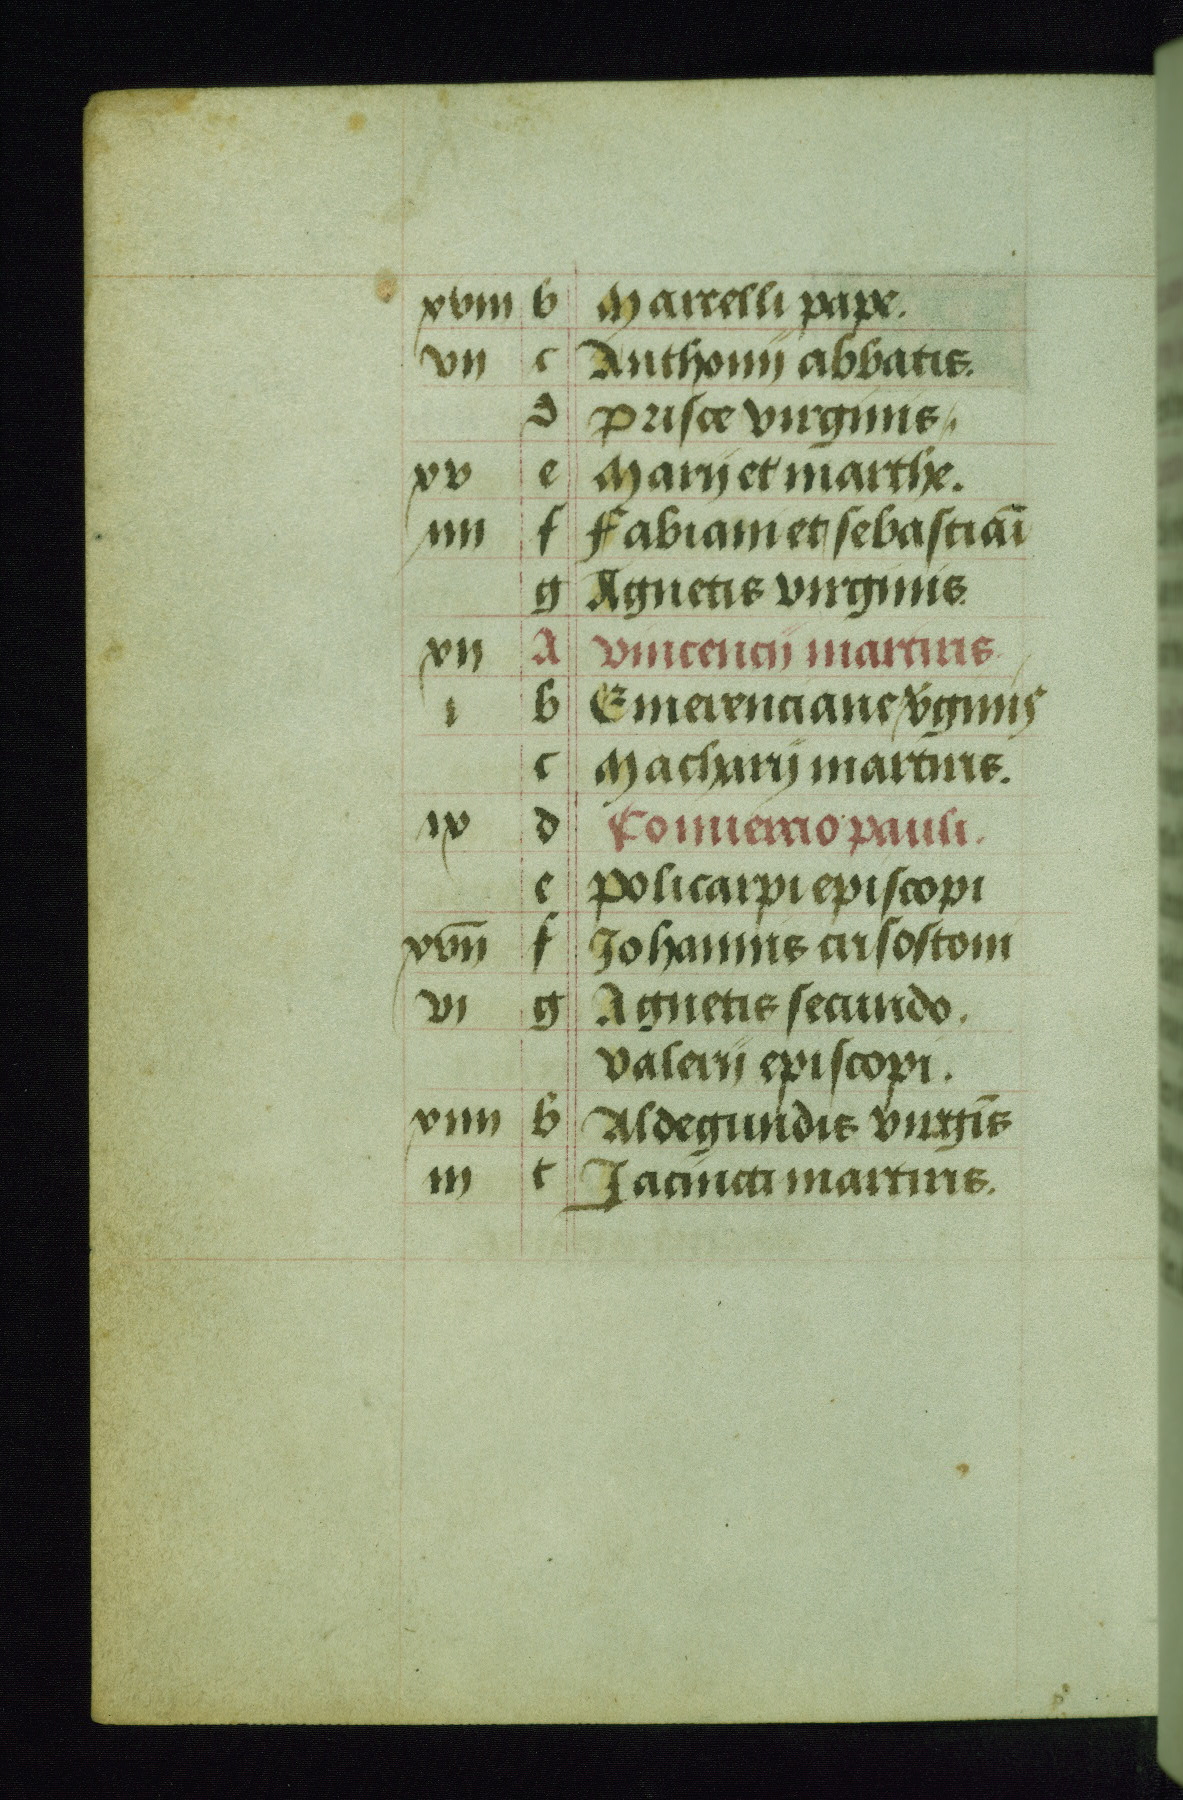 xviii b Marcelli pape.
vii c Anthonij abbatis.
d Prisce virginis
xv e Marij et marthe.
iiii f Fabiani et sebastiāi
g Agnetis virginis
xii A vincencij martiris
i b Emerenciane v̄ginis
c Macharij martiris.
ix d Conuercio pauli.
e policarpi episcopi
xvii f Johannis crisostomi
vi g Agnetis secundo.
valerij episcopi.
xiiii b Aldegundis virgīs
iii c Jacincti martiris.